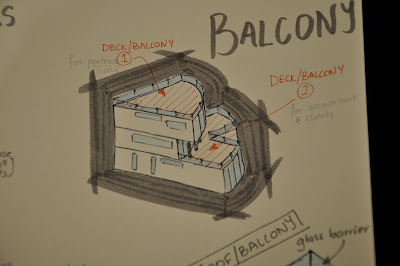 BALCONY
DECK/BALCONY
1
for partners
DECK/BALCONY
2
for accountant
& clients
OOF/BALCONY
glass barrier